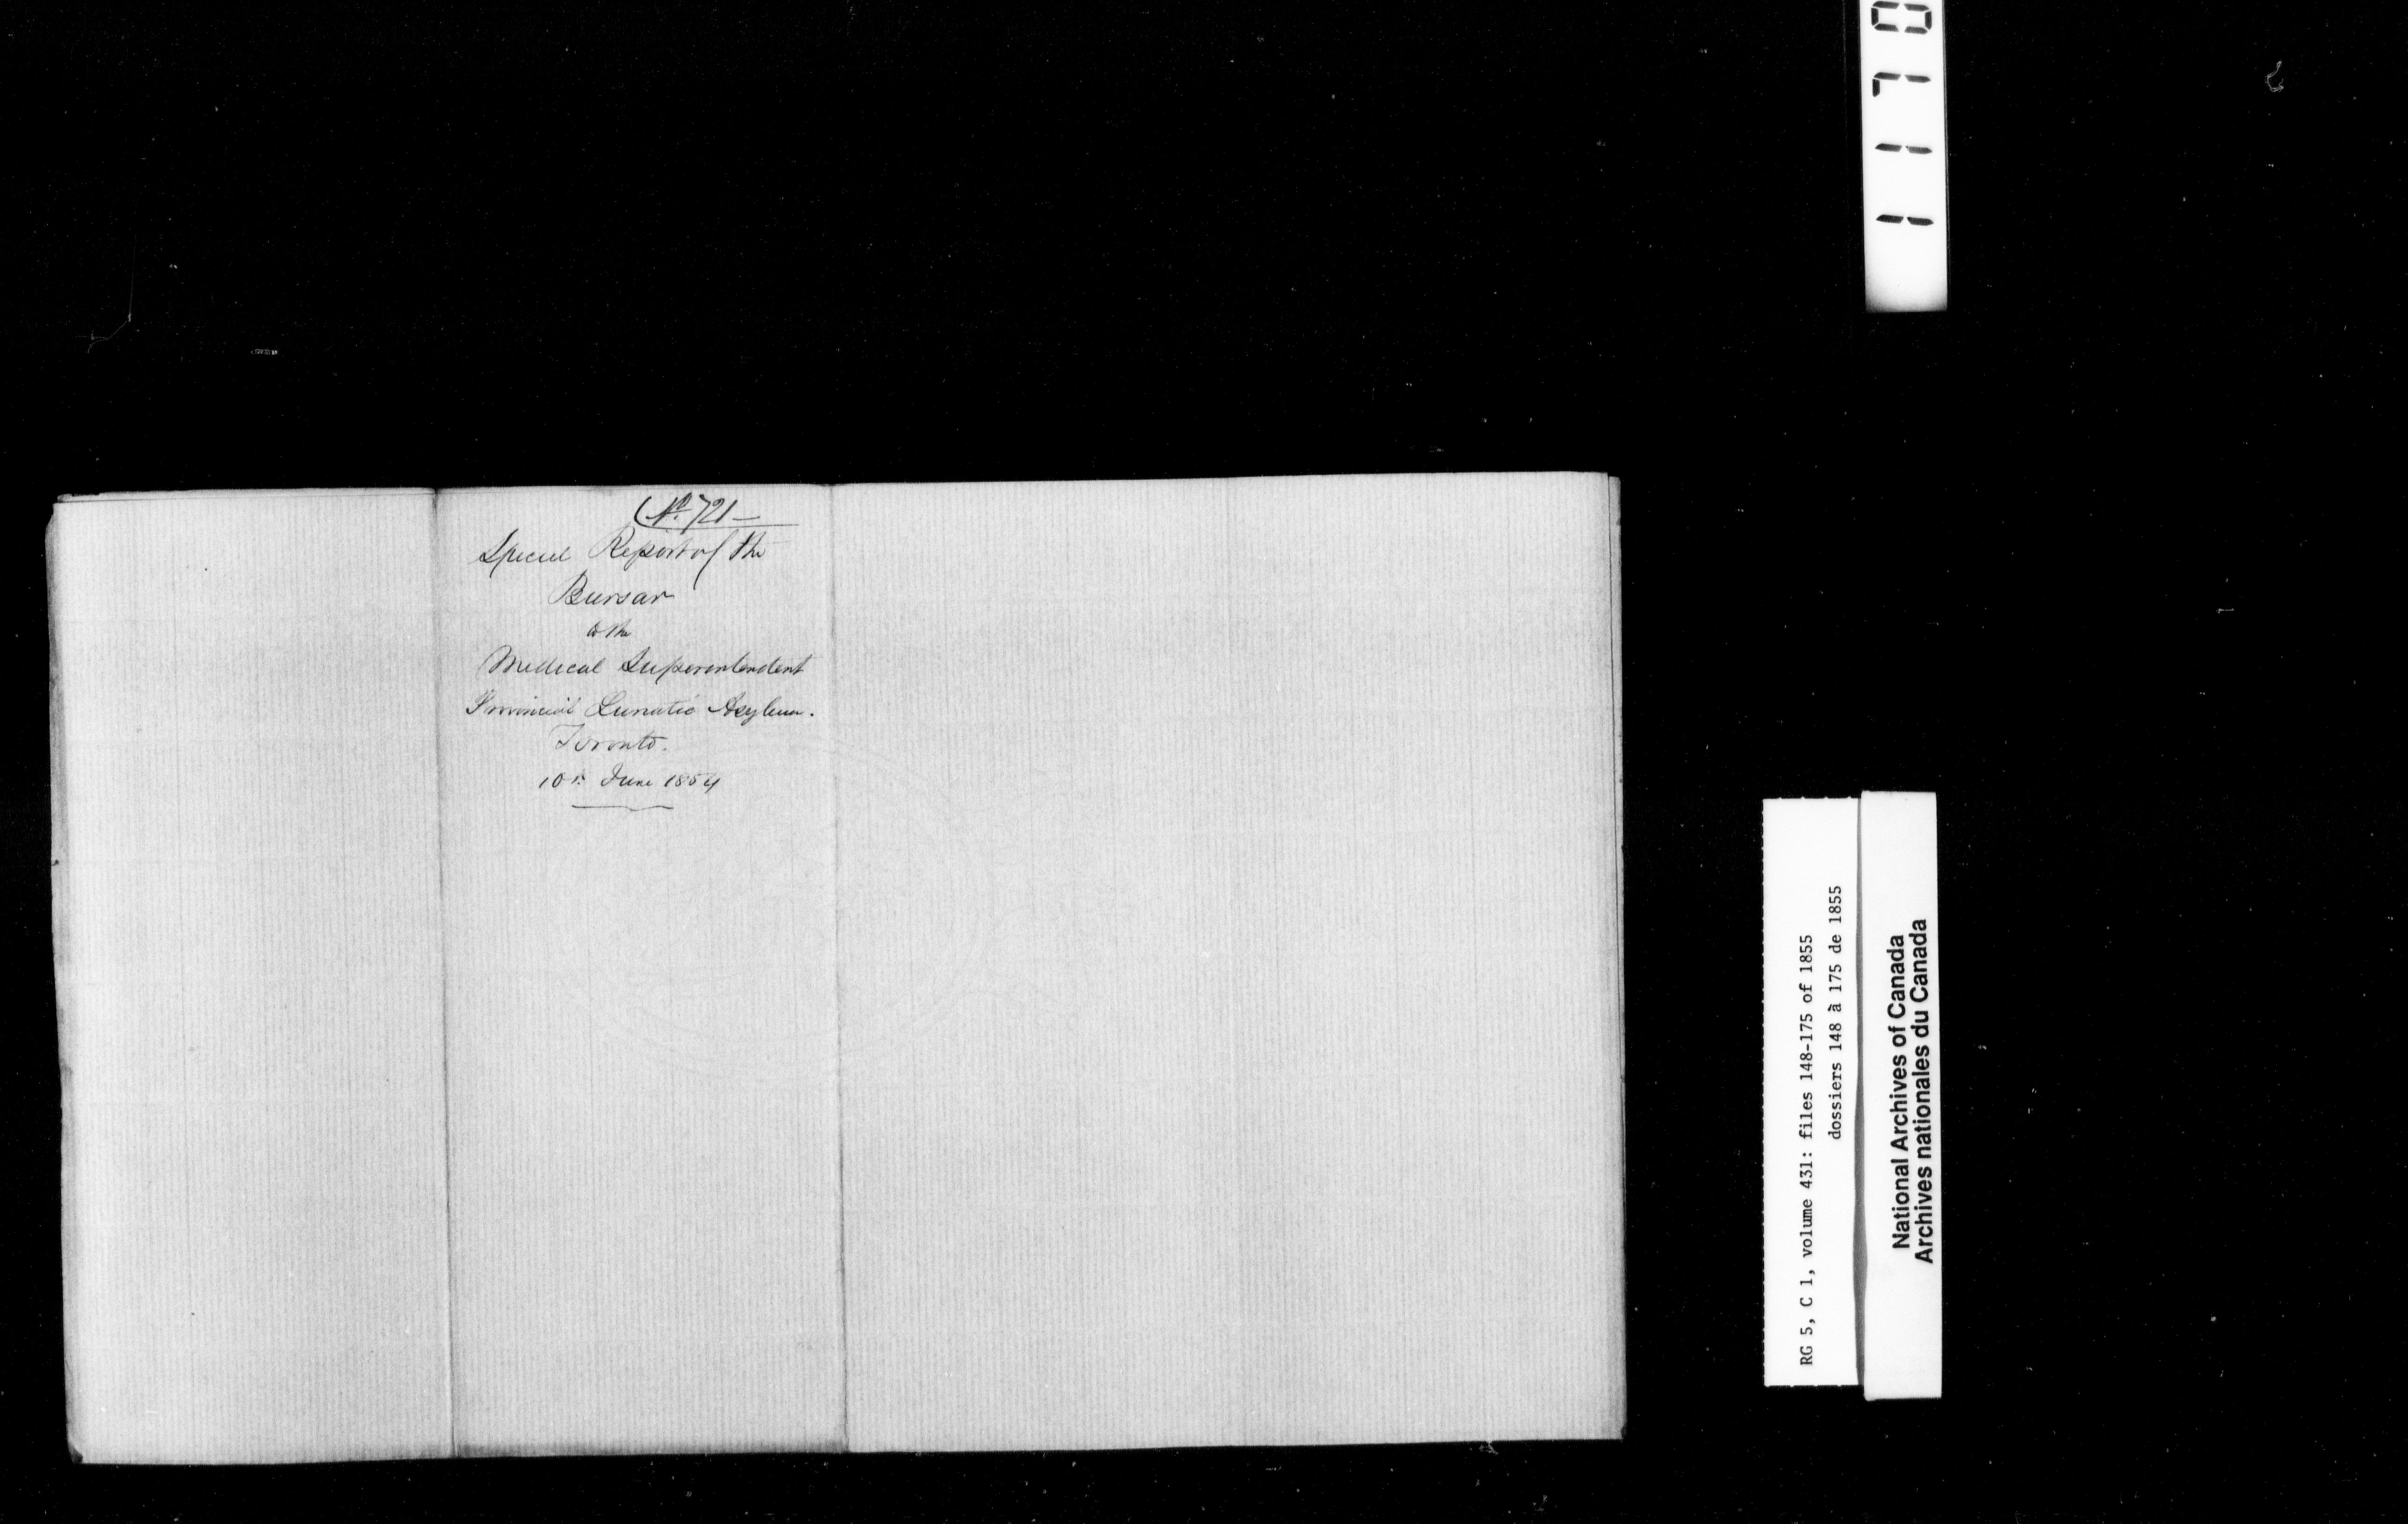 (No. 721 –
Special Report of the
Bursar
to the
Medical Superintendent
Provincial Lunatic Asylum.
Toronto.
10th June 1854
1170
RG 5, C 1, volume 431: files 148-175 of 1855
dossiers 148 à 175 de 1855
National Archives of Canada
Archives nationales du Canada